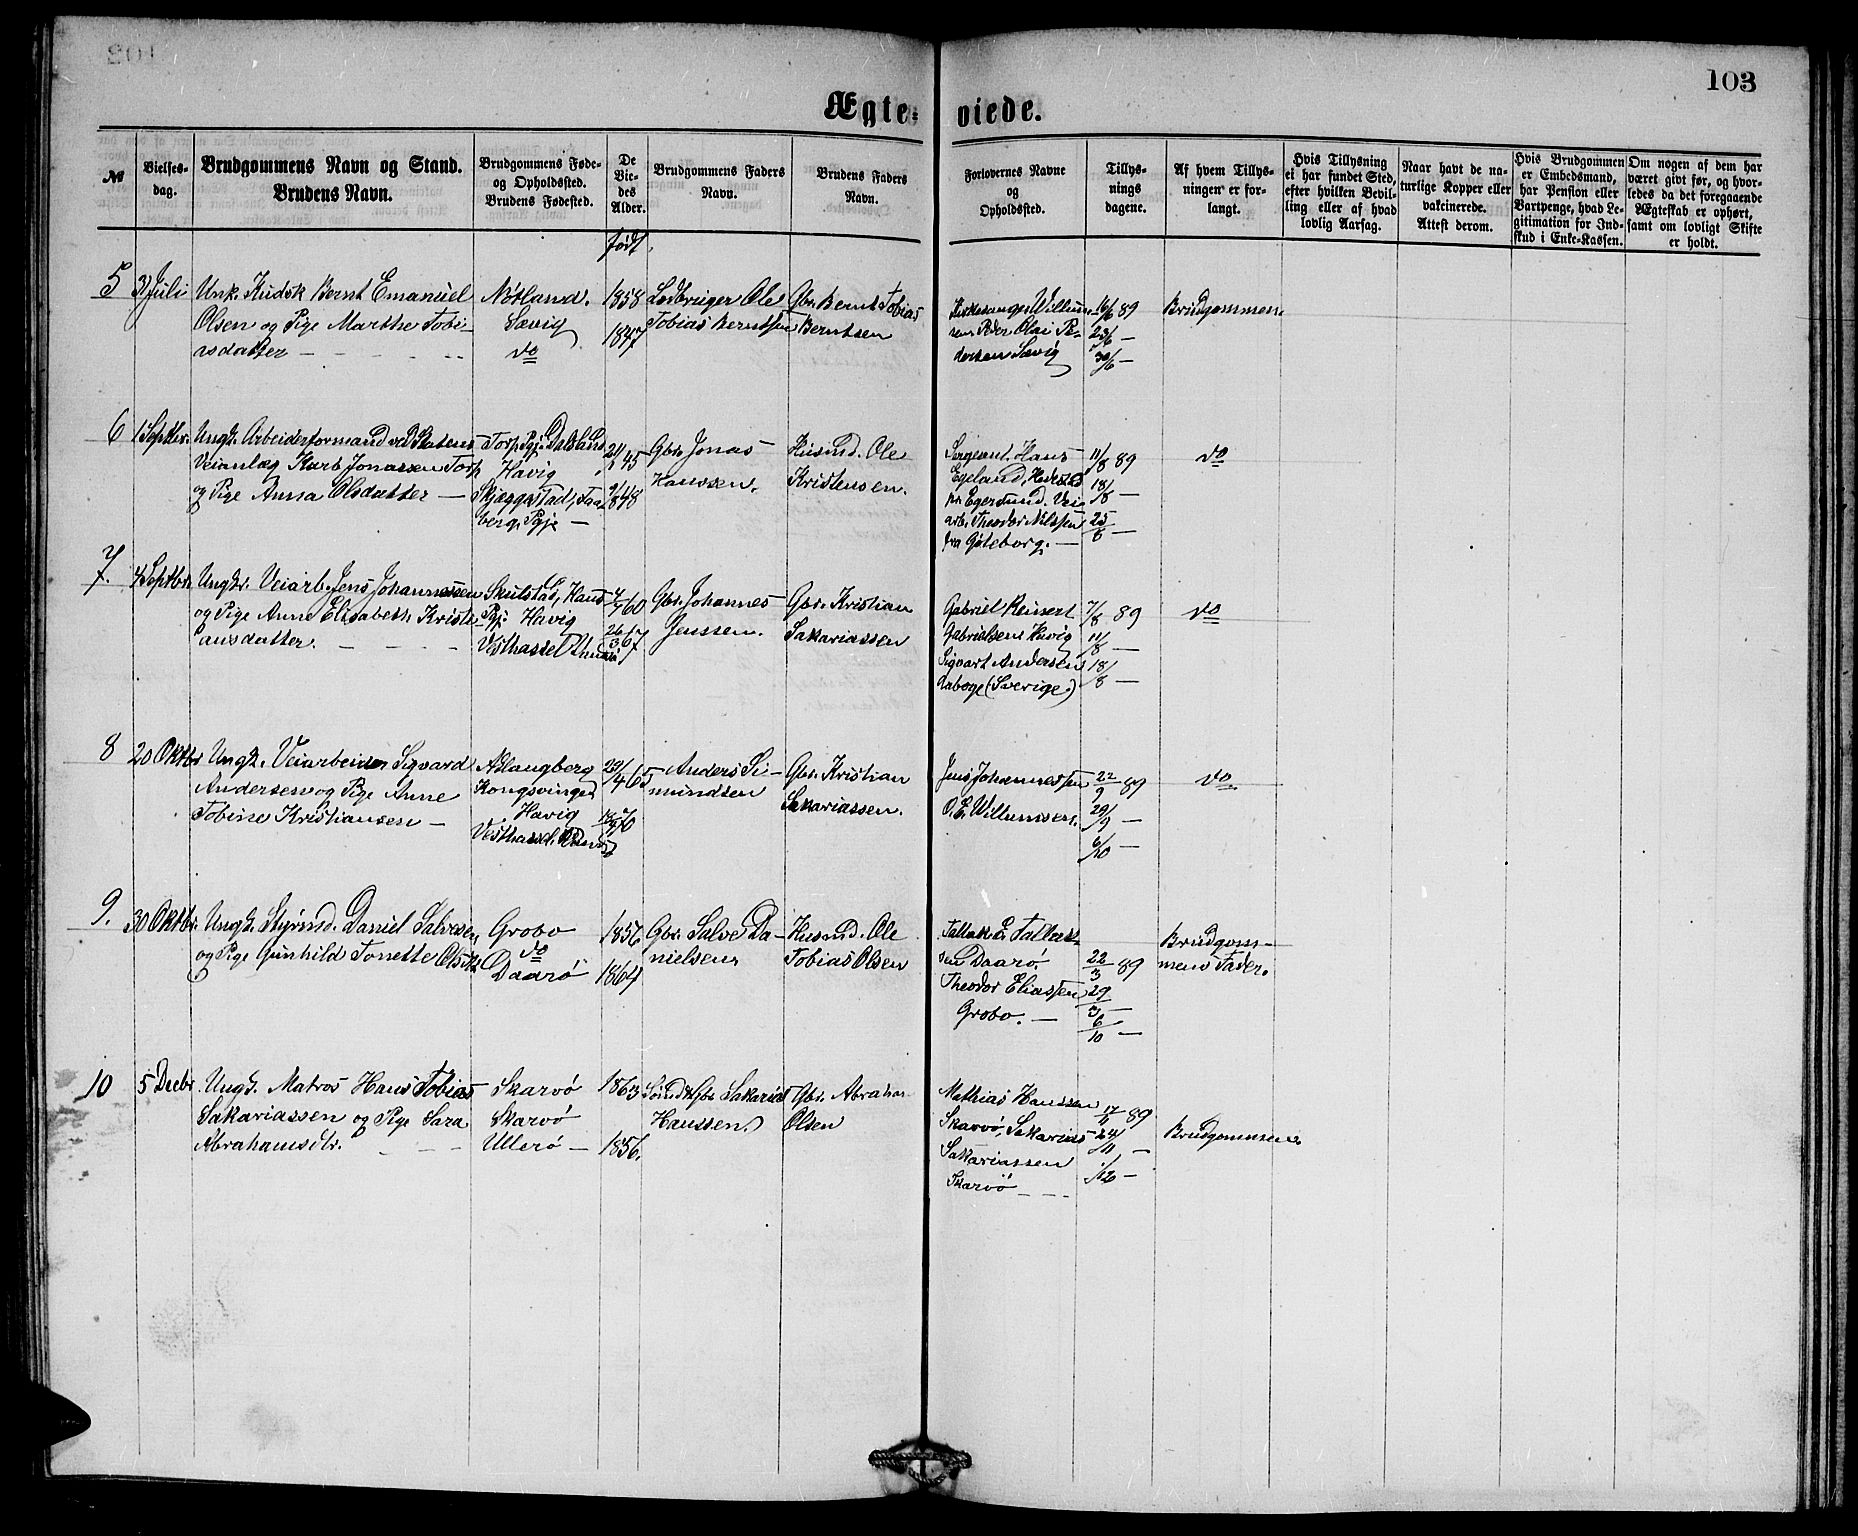 103
Ægte-viede.
№
Vielses-
dag.
Brudgommens Navn og Stand.
Brudens Navn.
Brudgommens Føde-
og Opholdssted.
Brudens Fødested.
De
Vie-
des
Alder.
Brudgommens Faders
Navn.
Brudens Faders
Navn.
Forlovernes Navne
og
Opholdssted.
Tillys-
nings
dagene.
Af hvem Tillys-
ningen er for-
langt.
Hvis Tillysning
ei har fundet Sted,
efter hvilken Bevil-
ling eller af hvad
lovlig Aarsag.
Naar havt de na-
turlige Kopper eller
vakcinerede.
Attest derom.
Hvis Brudgommen
er Embedsmand,
har Pension eller
Vartpenge, hvad Le-
gitimation for Ind-
skud i Enke-Kassen.
Om nogen af dem har
været givt før, og hvor-
ledes da det foregaaende
Ægteskab er ophørt,
samt om lovligt Skifte
er holdt.
født.
5
31 Juli
Unk. Kudsk Bernt Emanuel
Olsen og Pige Marthe Tobi-
asdatter
Nötland.
Sævig
do
1858
1847
Lodbruger Ole
Tobias Berntsen
Gbr. Bernt Tobias
Berntsen
Kirkesanger Willum-
sen Peder Olai Pe-
dersen Sævig
16/6 89
23/6 —
30/6 —
Brudgommen
6
1 Septbr.
Ungk. Arbeidsformand ved Statens
Veianlæg Karl Jonassen Torp
og Pige Anna Olsdatter —
Torp Pgj. Dalsland
Havig
Skjæggestad, Faa-
berg Pgje —
45
48
Gbr. Jonas
Hanssen.
Husmd. Ole
Kristensen.
Sergeant Hans
Egeland,
pr. Egersund. Vei-
arb. Theodor Nilssen
fra Göteborg. —
11/8 89
18/8 —
25/8 —
do
7.
4 Septbr.
Ungkr. Veiarb. Jens Johannessen
og Pige Anne Elisabeth Kristi-
ansdatter.
Skulstad, Haus
Pgj. Havig
Vesthassel
4/7 60
26/3 67
Gbr. Johannes
Jenssen.
Gbr. Kristian
Sakariassen
Gabriel Reinert
Gabrielsen Havig
Sigvart Andersen
(Sverige)
7/8 89
11/8 —
18/8 —
do
8
20 Oktbr
Ungk. Veiarbeider Sigvard
Andersen og Pige Anne
Tobine Kristiansen —
Kongsvinger
Havig
Vesthassel
Anders Si-
mundsen
Gbr. Kristian
Sakariassen.
Jens Johannessen
O. E. Willumsen.
22/9 89
29/9 —
6/10 —
do
9.
30 Oktbr.
Ungk. Styrmd. Daniel Salvesen,
og Pige Gunhild Tonette Olsdtr
Grobo
do
Daarö
1857
1864
Gbr. Salve Da-
nielsen
Husmd. Ole
Tobias Olsen
Tallak P. Tallak-
sen Daarö.
Theodor Eliassen
Grobo. —
22/3 89
29/3 —
6/10 —
Brudgom-
mens Fader.
10
5 Decbr.
Ungk. Matros Hans Tobias
Sakariassen og Pige Sara
Abrahamsdtr.
Skarvö
Skarvö
Ullerö —
1863
1856.
Sakarias
Hanssen
Gbr. Abraham
Olsen
Mathias Hanssen
Skarvö, Sakarias
Sakariassen
Skarvö
17/11 89
24/11 —
1/12 —
Brudgommen